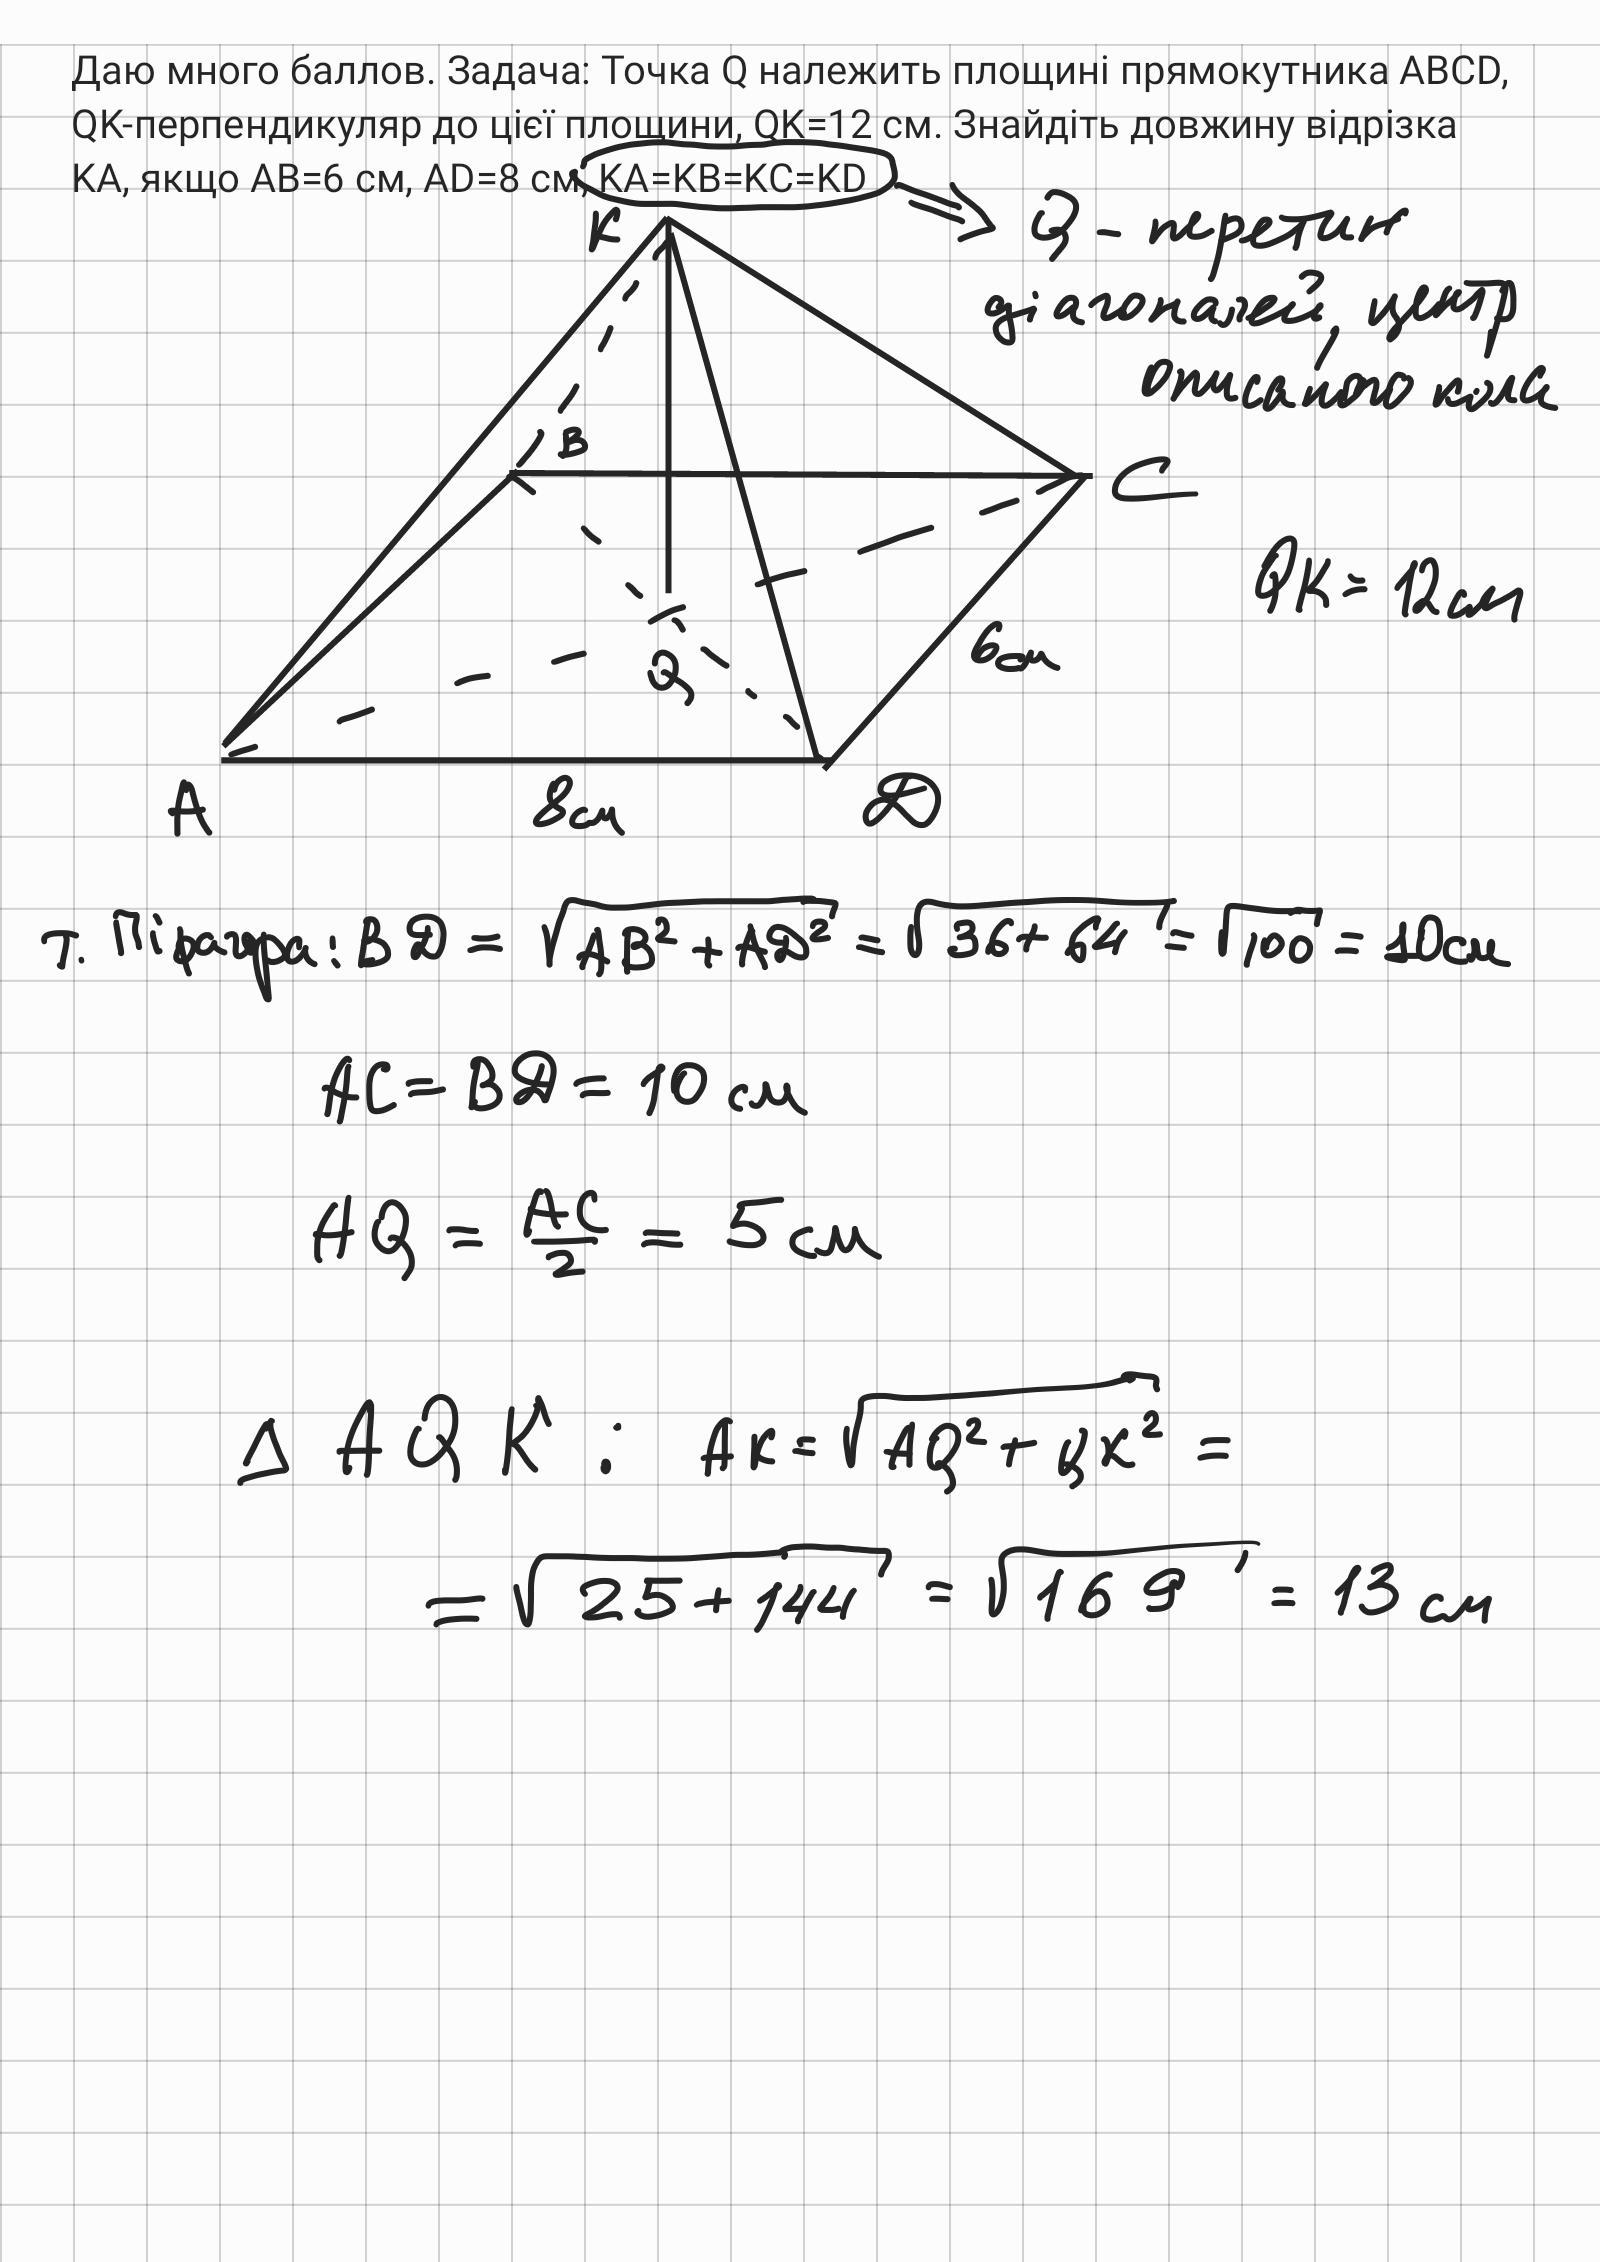 Даю много баллов. Задача: Точка Q належить площині прямокутника ABCD,
QK-перпендикуляр до цієї площини, QK=12 см. Знайдіть довжину відрізка
KA, якщо AB=6 см, AD=8 см, KA=KB=KC=KD
K
⇒ Q - перетин
діагоналей, центр
описаного кола
B
C
QK = 12см
6см
Q
A
8см
D
т. Піфагора: BD = √(AB² + AD²) = √(36 + 64) = √100 = 10см
AC = BD = 10 см
AQ = AC/2 = 5 см
Δ AQK : AK = √(AQ² + QK²) =
= √(25 + 144) = √169 = 13 см